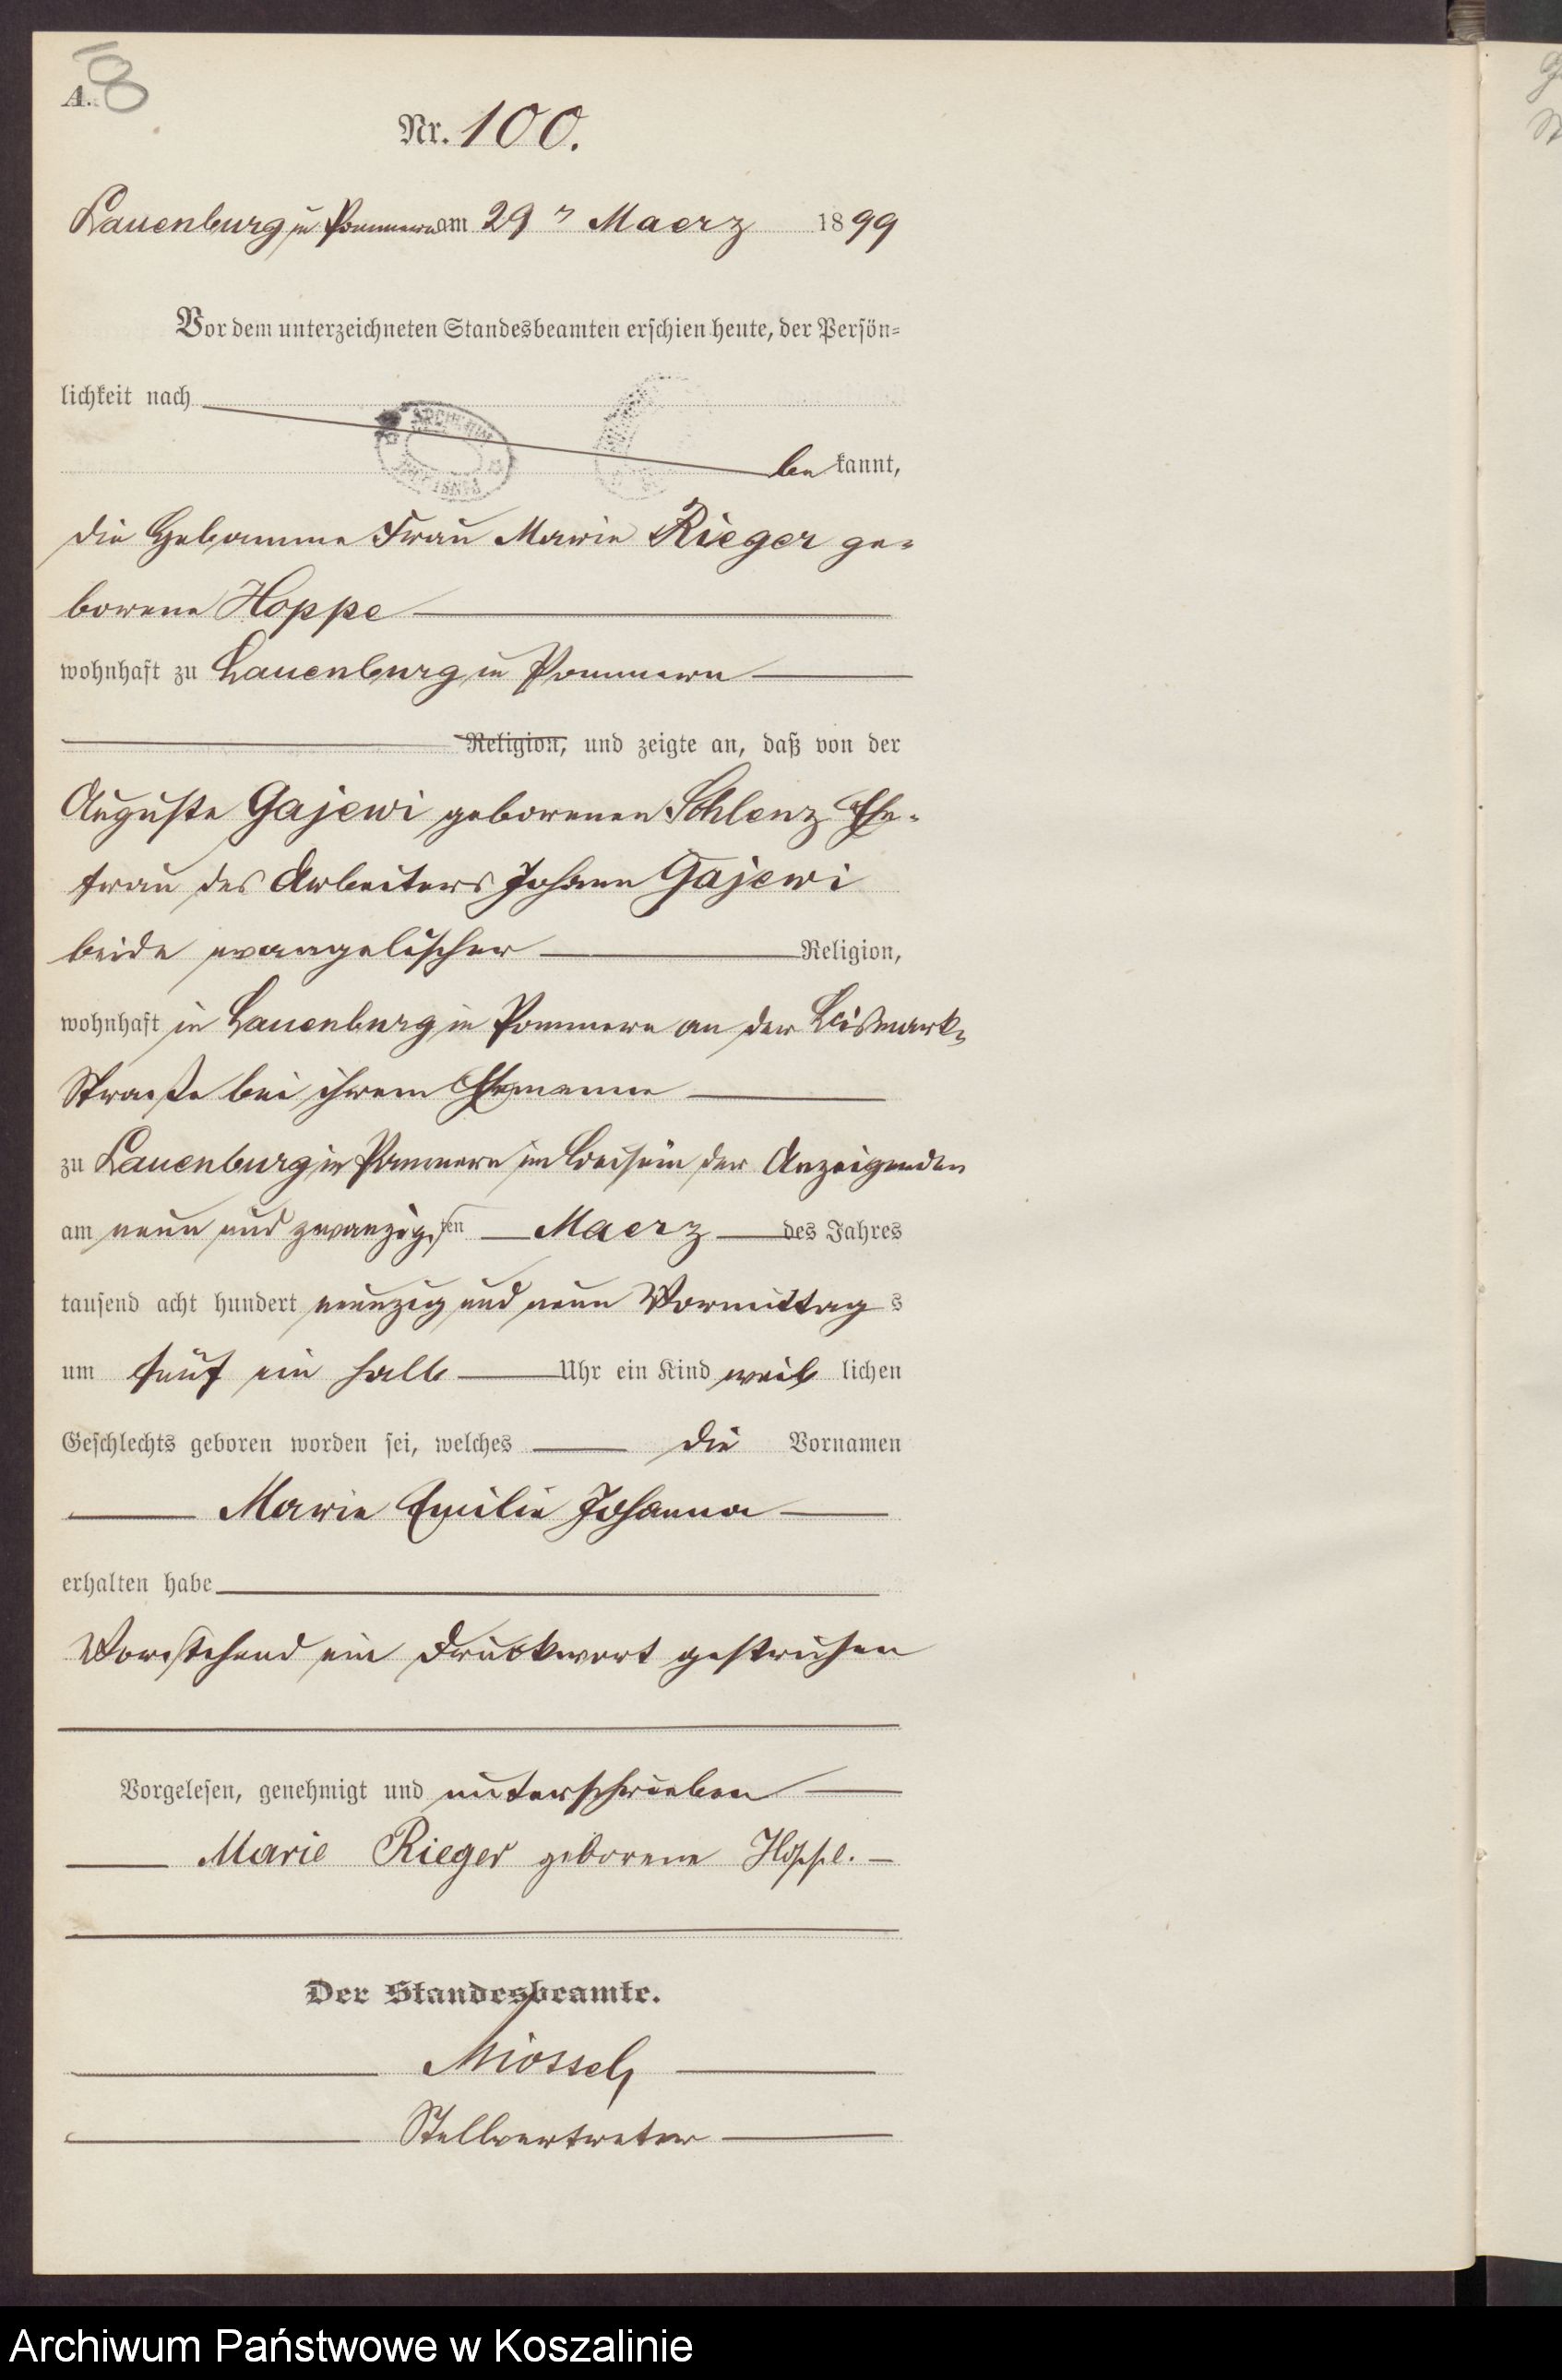 A. 8
Nr. 100.
Lauenburg in Pommern am 29 Maerz 1899
Vor dem unterzeichneten Standesbeamten erschien heute, der Persön=
lichkeit nach
be kannt,
die Hebamme Frau Marie Rieger ge=
borene Hoppe
wohnhaft zu Lauenburg in Pommern
Religion, und zeigte an, daß von der
Auguste Gajewi geborenen Schlenz Ehe=
frau des Arbeiters Johann Gajewi
beide evangelischer Religion,
wohnhaft in Lauenburg in Pommern an der Bismark=
Straße bei ihrem Ehemanne
zu Lauenburg in Pommern im Beisein der Anzeigenden
am neun und zwanzigsten Maerz des Jahres
tausend acht hundert neunzig und neun Vormittags
um fünf ein halb Uhr ein Kind weib lichen
Geschlechts geboren worden sei, welches die Vornamen
Marie Emilie Johanna
erhalten habe
Vorstehend ein Druckwort gestrichen
Vorgelesen, genehmigt und unterschrieben
Marie Rieger geborene Hoppe.
Der Standesbeamte.
Stellvertreter
Archiwum Państwowe w Koszalinie